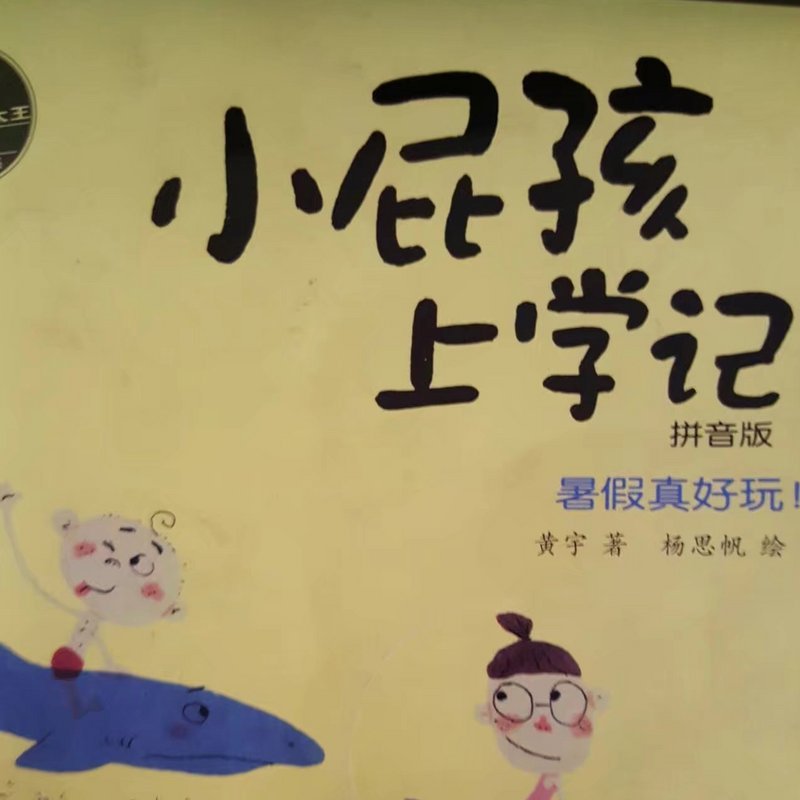 大王
小屁孩
上学记
拼音版
暑假真好玩!
黄宇 著 杨思帆 绘